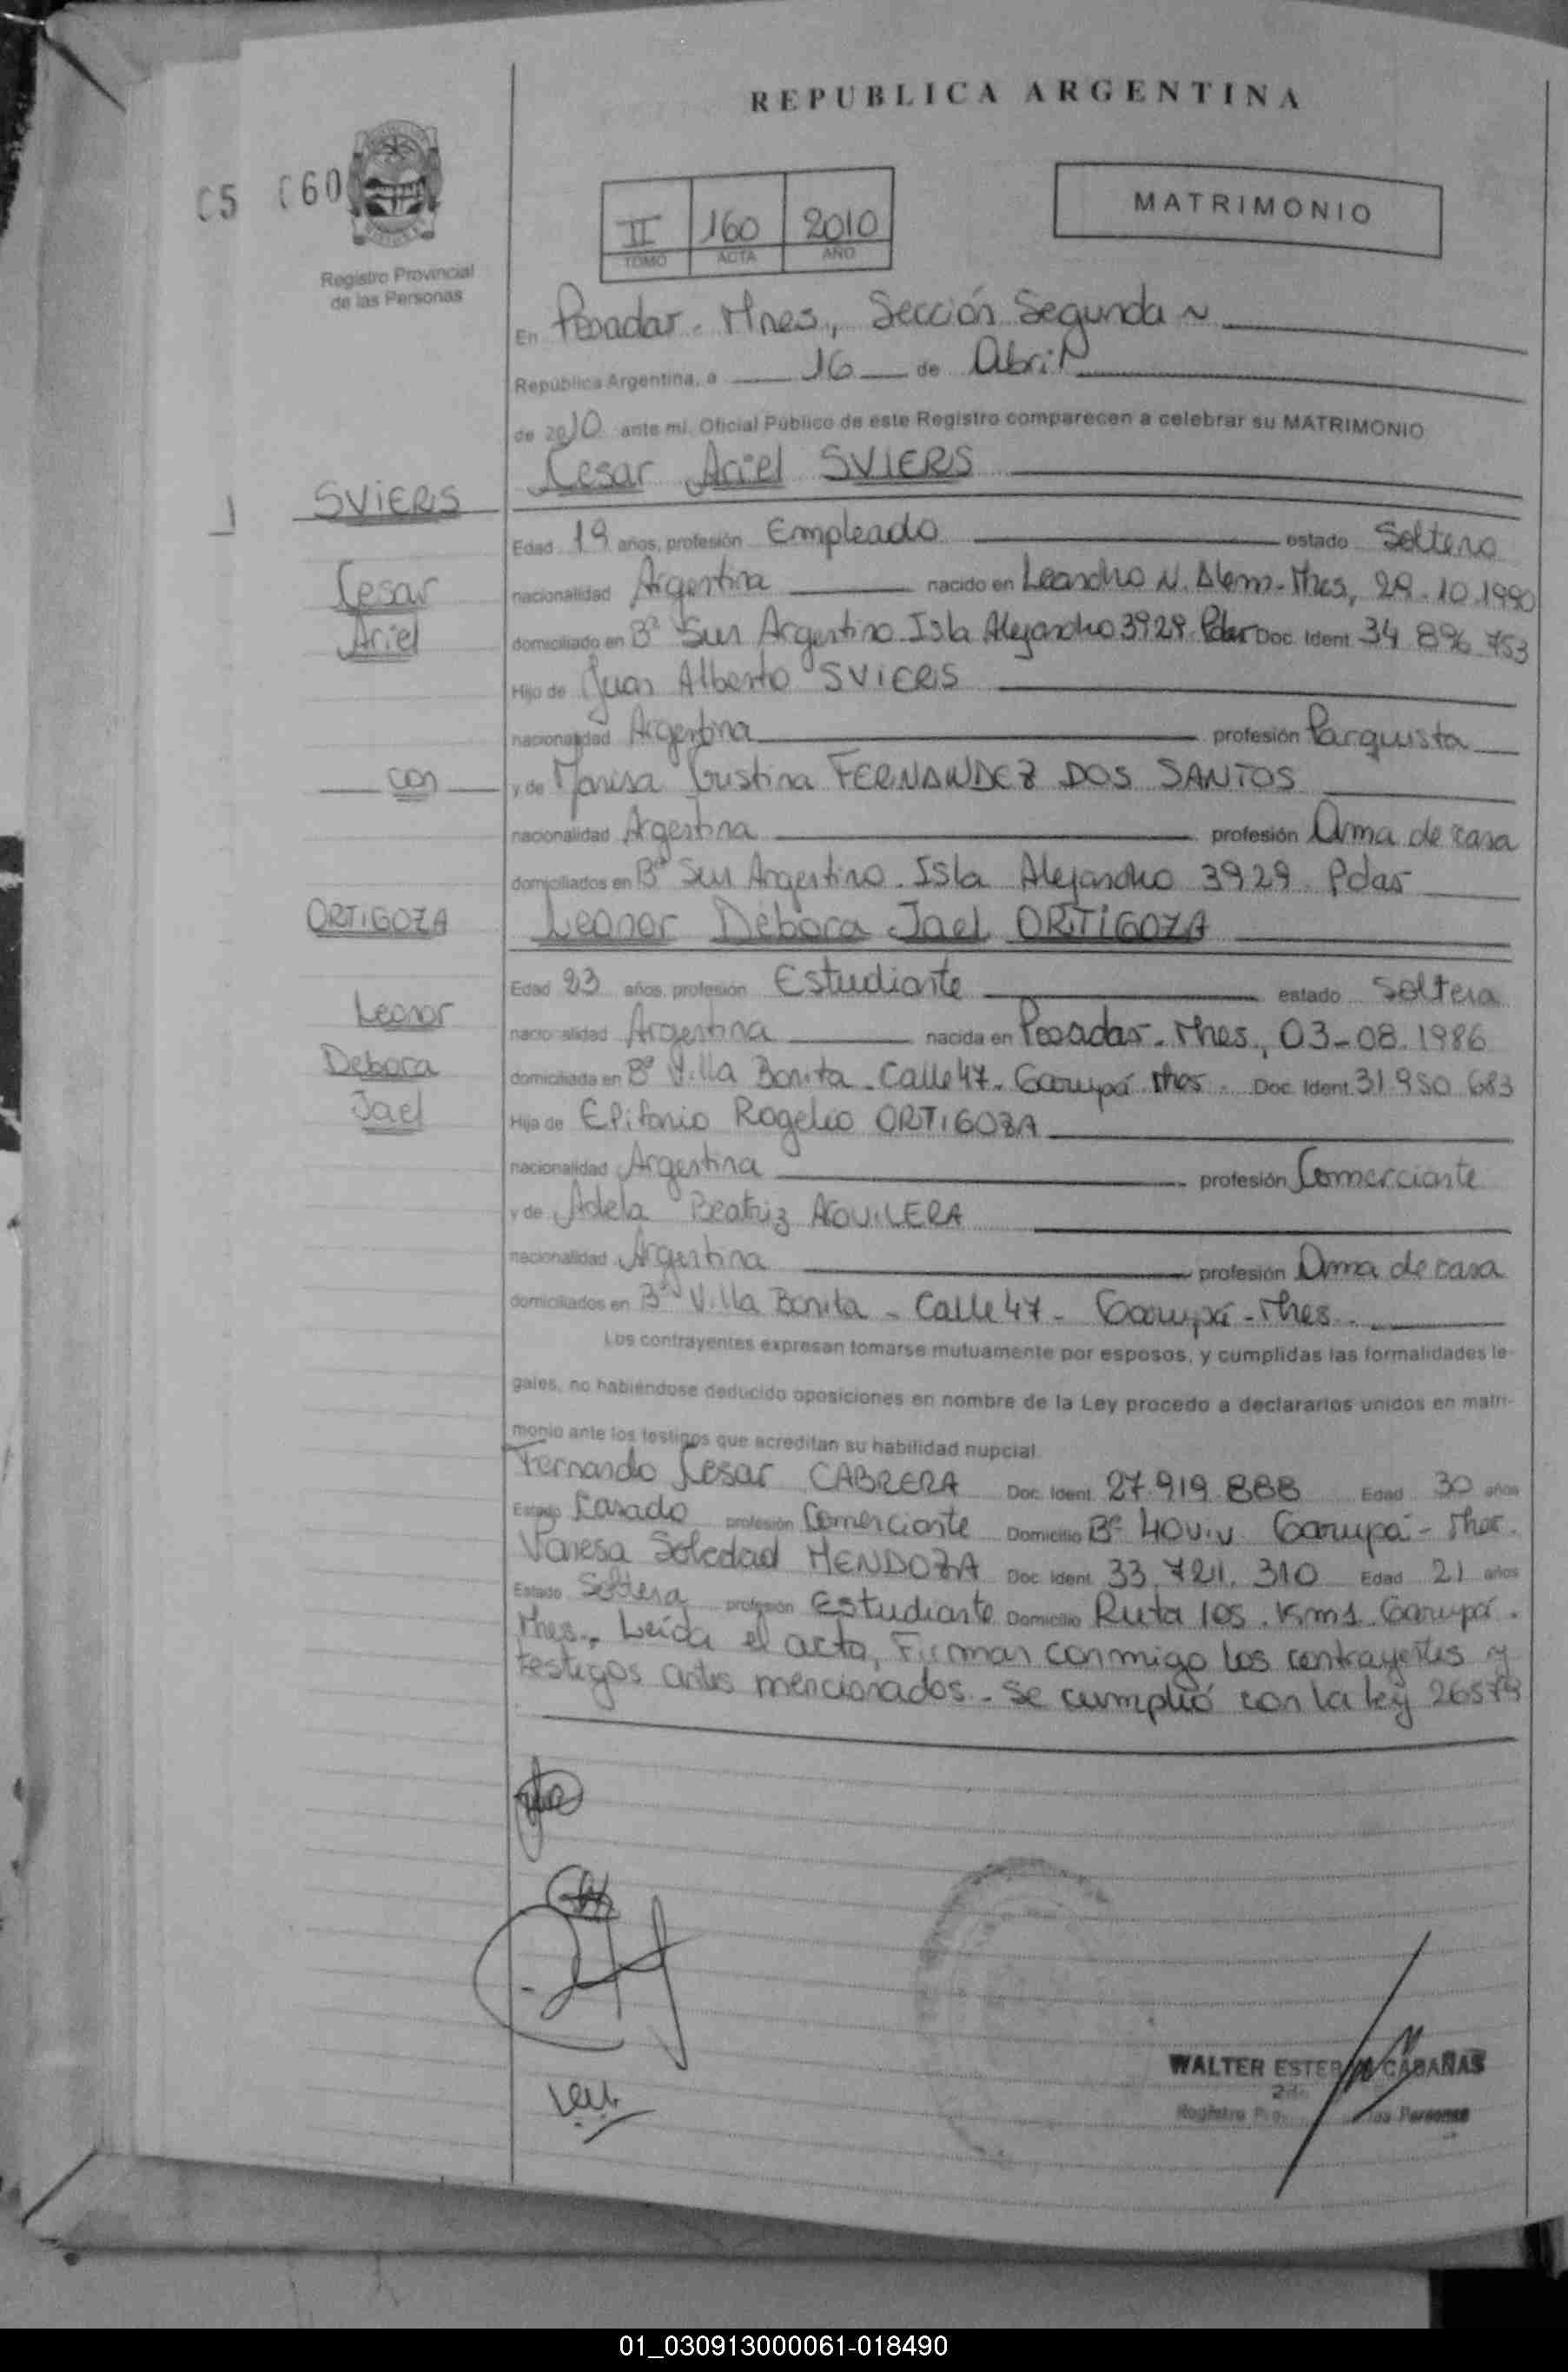 REPUBLICA ARGENTINA
C5 C60
Registro Provincial
de las Personas
II 160 2010
TOMO ACTA AÑO
MATRIMONIO
En Posadas - Mnes, Sección Segunda
República Argentina, a 16 de Abril
de 2010 ante mi, Oficial Público de este Registro comparecen a celebrar su MATRIMONIO
Cesar Ariel SVIERS
SVIERS
Edad 19 años, profesión Empleado estado Soltero
Cesar
nacionalidad Argentina nacido en Leandro N. Alem - Mnes, 29.10.1990
Ariel
domiciliado en Bº Sur Argentino Isla Alejandro 3929 Pdas Doc. Ident. 34 896 753
Hijo de Juan Alberto SVIERS
nacionalidad Argentina profesión Parquista
con
y de Marisa Cristina FERNANDEZ DOS SANTOS
nacionalidad Argentina profesión Ama de casa
domiciliados en Bº Sur Argentino. Isla Alejandro 3929 Pdas
ORTIGOZA
Leonor Débora Jael ORTIGOZA
Edad 23 años, profesión Estudiante estado Soltera
Leonor
nacionalidad Argentina nacida en Posadas - Mnes, 03-08.1986
Debora
domiciliada en Bº Villa Bonita - Calle 47 - Garupá Mnes - Doc. Ident. 31.950 683
Jael
Hija de Epifanio Rogelio ORTIGOZA
nacionalidad Argentina profesión Comerciante
y de Adela Beatriz AGUILERA
nacionalidad Argentina profesión Ama de casa
domiciliados en Bº Villa Bonita - Calle 47 - Garupá - Mnes.
Los contrayentes expresan tomarse mutuamente por esposos, y cumplidas las formalidades le-
gales, no habiéndose deducido oposiciones en nombre de la Ley procedo a declararlos unidos en matri-
monio ante los testigos que acreditan su habilidad nupcial
Fernando Cesar CABRERA Doc. Ident. 27.919.888 Edad 30 años
Estado Casado profesión Comerciante Domicilio Bº 40 v.v Garupá - Mnes.
Vanesa Soledad MENDOZA Doc. Ident. 33.721.310 Edad 21 años
Estado Soltera profesión Estudiante Domicilio Ruta 105. Km 1. Garupá.
Mnes., Leída el acta, Firman conmigo los contrayentes y
testigos antes mencionados. - Se cumplió con la ley 26579
WALTER CABAÑAS
Registro las Personas
01_030913000061-018490